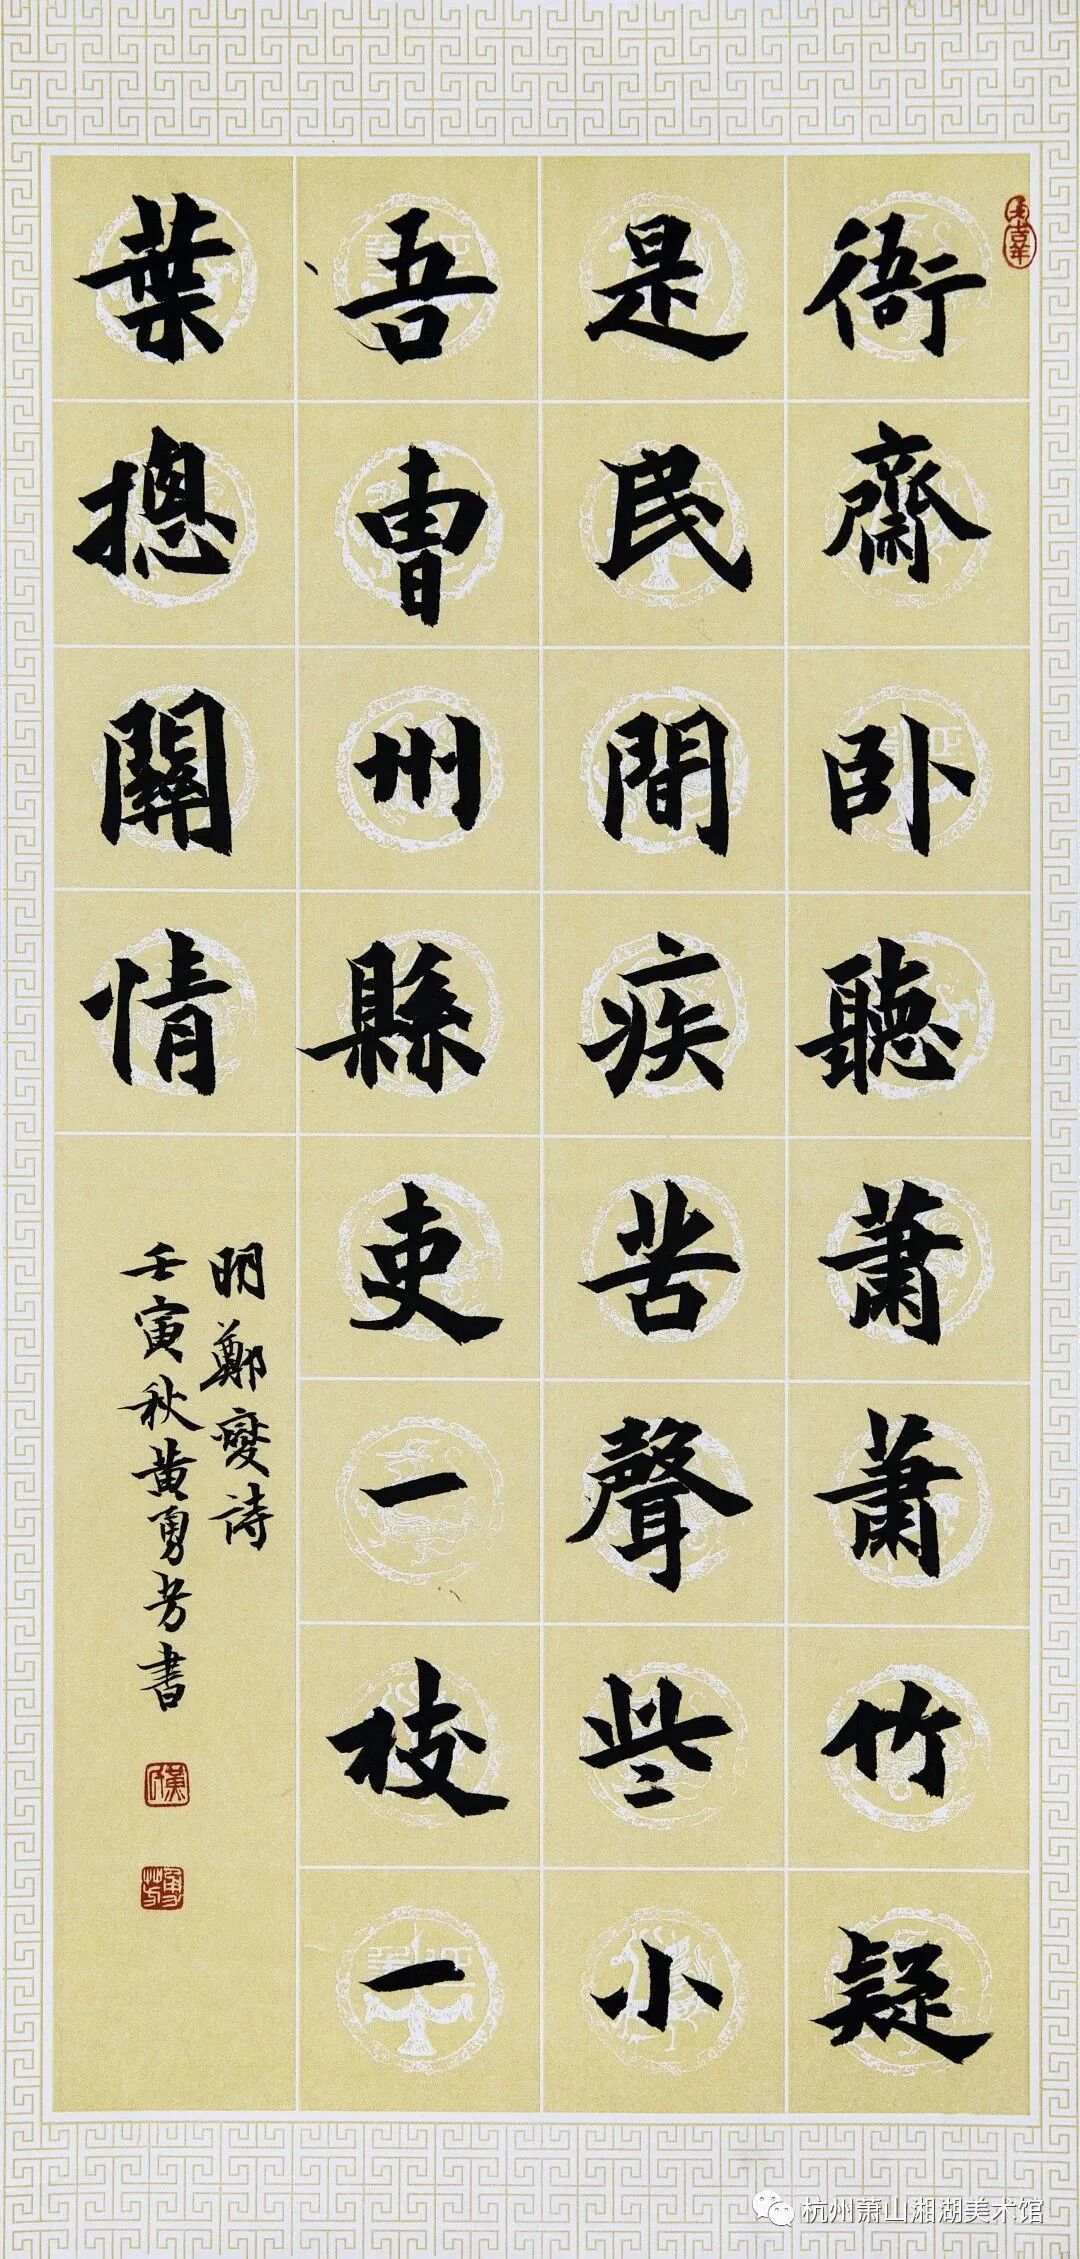 衙齋卧聽蕭蕭竹疑
是民間疾苦聲些小
吾曹州縣吏一枝一
葉摠關情
明鄭燮詩
壬寅秋黄勇芳書
杭州萧山湘湖美术馆